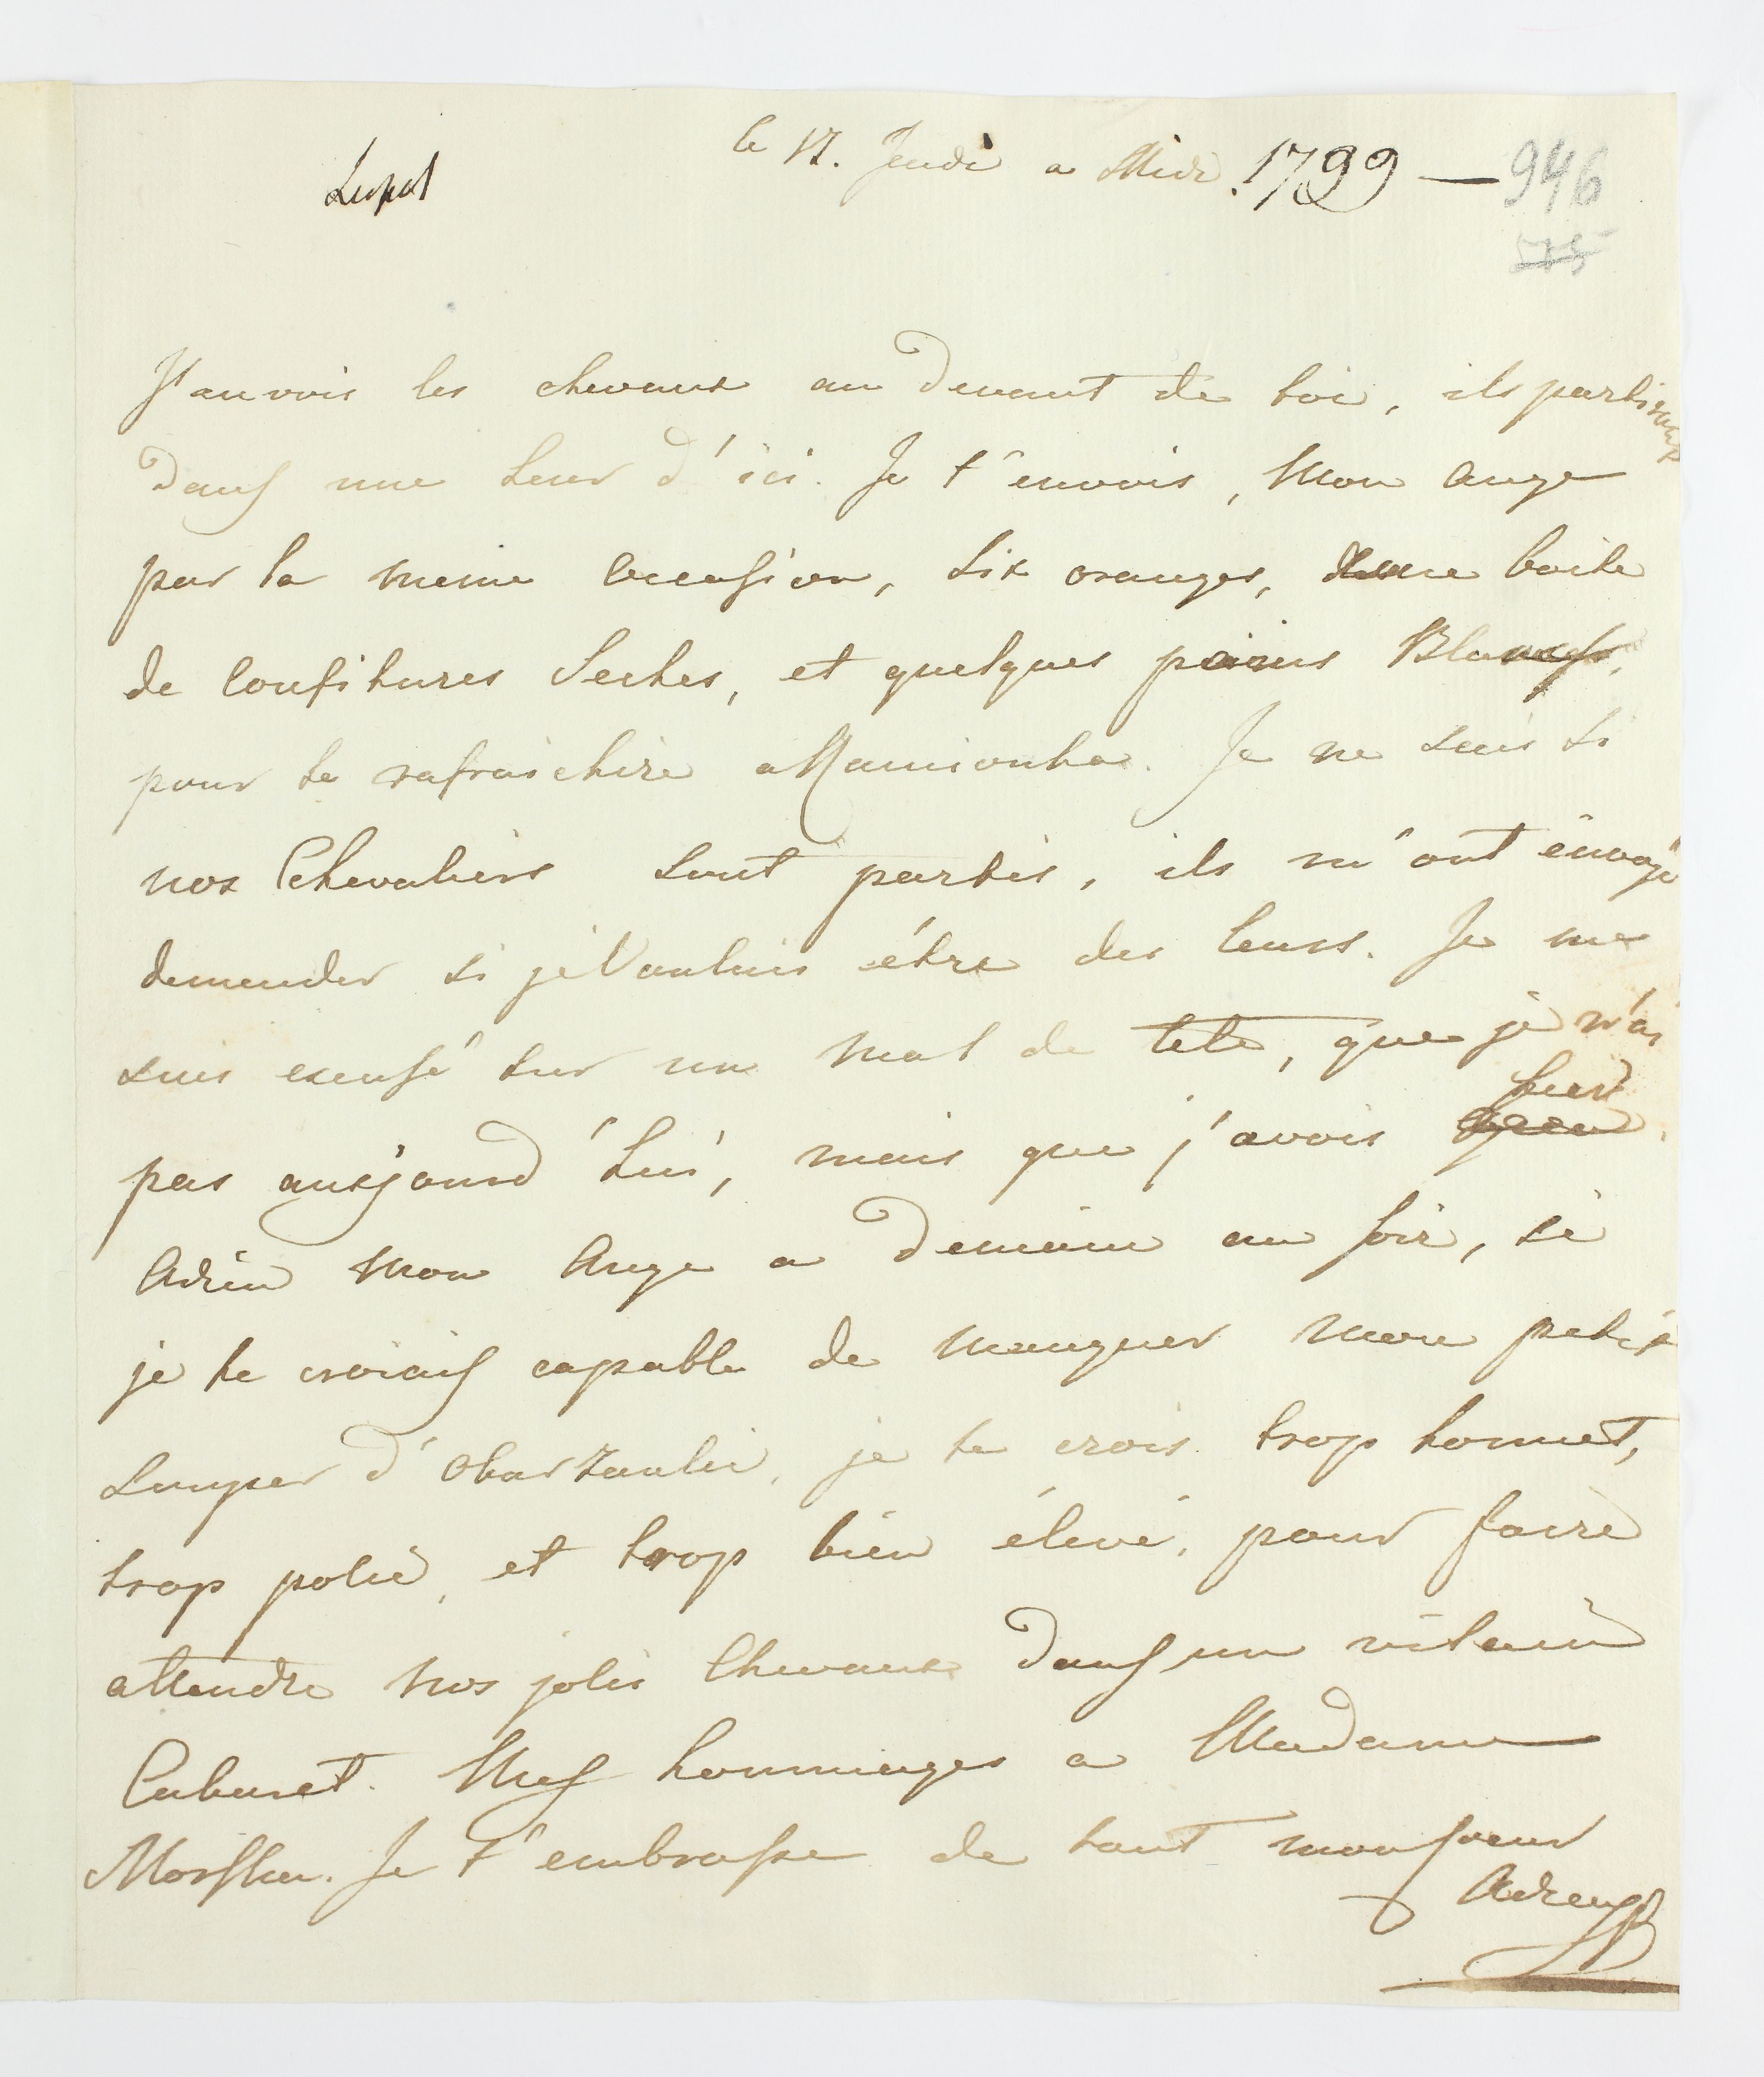 le 17. Jeudi a Midi. 1799 — 946
J'anvois les chevaux au Devant de toi, ils partiront
dans une heur d'ici. Je t'envois, Mon ange
par la meme occasion, six oranges, une boite
de Confitures Seches, et quelques pains Blancs,
pour te rafraichire a Mamionka. Je ne sais si
nos Chevaliers sont partis, ils m'ont envoyé
demender si je Voulais étre des leurs. Je me
suis excusé sur un mal de tete, que je n'ai
pas aujourd'hui, mais que j'avois hier.
Adieu Mon Ange a Demain au soir, si
je te croiais capable de manquer mon petit
souper d'Obarzanki, je te crois trop honnet,
trop polie, et trop bien élevé, pour faire
attendre nos jolis Chevaux Dans un vilain
Cabaret. Mes hommages a Madame
Morska. Je t'embrasse de tout mon coeur